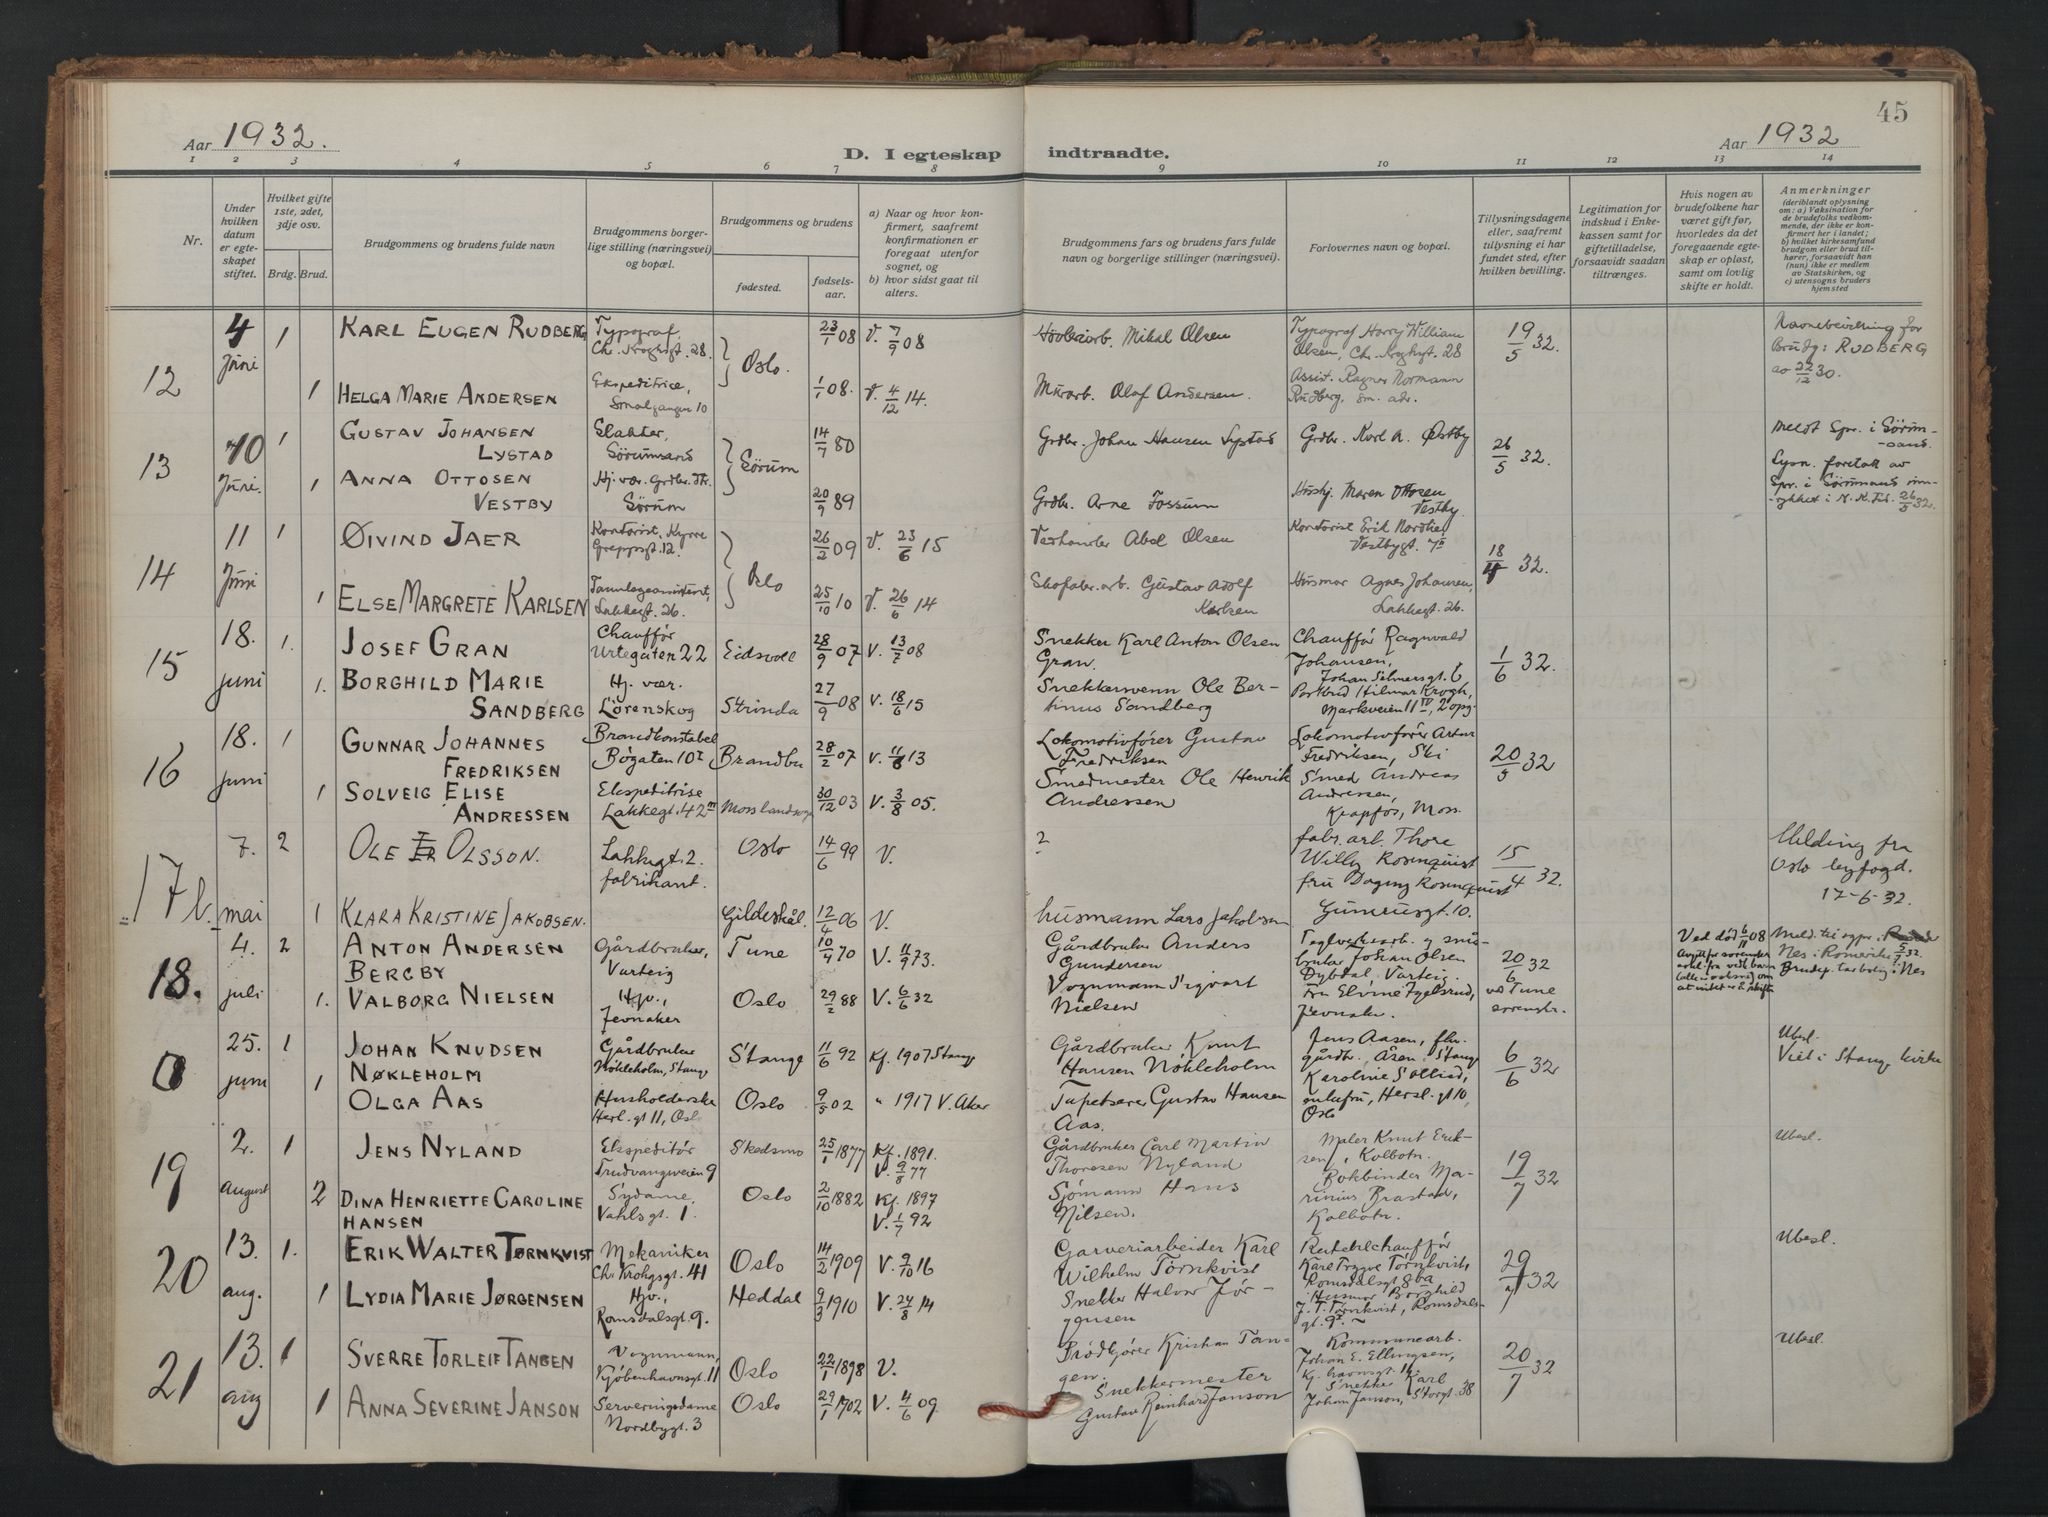 45
Aar 1932.
Aar 1932
D. I egteskap indtraadte.
1 2 3 4 5 6 7 8 9 10 11 12 13 14
Nr.
Under hvilken datum er egteskapet stiftet.
Hvilket gifte 1ste, 2det, 3dje osv.
Brdg. Brud.
Brudgommens og brudens fulde navn
Brudgommens borgerlige stilling (næringsvei) og bopæl.
Brudgommens og brudens
fødested.
fødselsaar.
a) Naar og hvor konfirmert, saafremt konfirmationen er foregaat utenfor sognet, og
b) hvor sidst gaat til alters.
Brudgommens fars og brudens fars fulde navn og borgerlige stillinger (næringsvei).
Forlovernes navn og bopæl.
Tillysningsdagene eller, saafremt tillysning ei har fundet sted, efter hvilken bevilling.
Legitimation for indskud i Enkekassen samt for giftetilladelse, forsaavidt saadan tiltrænges.
Hvis nogen av brudefolkene har været gift før, hvorledes da det foregaaende egteskap er opløst, samt om lovlig skifte er holdt.
Anmerkninger (deriblandt oplysning om: a) Vaksination for de brudefolks vedkommende, der ikke er konfirmert her i landet; b) hvilket kirkesamfund brudgom eller brud tilhører, forsaavidt han (hun) ikke er medlem av Statskirken, og c) utensogns bruders hjemsted
12
4 Juni
1 KARL EUGEN RUDBERG
Typograf, Ch. Kroghsgt. 28.
Oslo.
23/1 08 V. 7/9 08
Høvleiarb. Mikal Olsen
Typograf Harry William Olsen, Ch. Kroghsgt. 28
19/5 32.
Navnebevilling for Brudg: RUDBERG av 22/12 30.
1 HELGA MARIE ANDERSEN
Ekspeditrice, Smalgangen 10
1/1 08. V. 4/12 14.
Murarb. Olaf Andersen.
Assist. Ragnar Normann Rudberg, sm. adr.
13
10 Juni.
1 GUSTAV JOHANSEN LYSTAD
Slakter, Sørumsand
Sørum
14/7 80
Grdbr. Johan Hansen Lystad
Grdbr. Karl A. Østby
26/5 32.
Meldt Spr. i Sørumsand.
Lysn. foretatt av Spr. i Sørumsand
1 ANNA OTTOSEN VESTBY
Hj. vær. Grdbr. dtr. Sørum
20/9 89
Grdbr. Arne Fossum
Hushj. Maren Ottosen Vestby.
14
11 Juni
1 ØIVIND JAER
Kontorist, Kyrre Greppsgt. 12.
Oslo
26/2 09 V. 23/6 15
Vedhandler Abel Olsen
Kontorist Erik Nordhei, Vestbygt. 7
18/4 32.
1 ELSE MARGRETE KARLSEN
Tannlegeassistent, Lakkegt. 26.
25/10 10 V. 26/6 14
Skofabr. arb. Gustav Adolf Karlsen
Husmor Agnes Johansen, Lakkegt. 26.
15
18. juni
1. JOSEF GRAN
Chauffør Urtegaten 22
Eidsvoll
28/9 07 V. 13/7 08
Snekker Karl Anton Olsen Gran.
Chauffør Ragnvald Johansen, Johan Selmersgt. 6
1/6 32.
1. BORGHILD MARIE SANDBERG
Hj. vær. Lørenskog
Strinda
27/9 08 V. 18/6 15
Snekkersvenn Ole Bertinus Sandberg
Postbud Hilmar Krogh, Markveien 11 IV, 2 opg.
16
18. juni
1 GUNNAR JOHANNES FREDRIKSEN
Brandkonstabel Bøgaten 10
Brandbu
28/2 07 V. 11/8 13
Lokomotivfører Gustav Fredriksen
Lokomotivfører Artur Fredriksen, Ski
20/5 32
1 SOLVEIG ELISE ANDRESSEN
Ekspeditrise Lakkegt. 42 III
Moss landsogn
30/12 03 V. 3/8 05.
Smedmester Ole Henrik Andressen
Smed Andreas Andressen, Krapfos, Moss.
17 b.
7. mai
2 OLE OLSSON.
Lakkegt. 2. fabrikant.
Oslo
14/6 99 V.
?
fabr. arb. Thore Willy Rosenquist
fru Dagny Rosenquist Grünersgt. 10.
15/4 32.
Melding fra Oslo byfogd. 17-6-32.
1 KLARA KRISTINE JAKOBSEN.
Gildeskål.
12/4 06 V.
husmann Lars Jakobsen
18.
4. juli
2 ANTON ANDERSEN BERGBY
Gårdbruker, Varteig
Tune
10/4 70 V. 11/9 73.
Gårdbruker Anders Gundersen
Teglverksarb. og småbruker Johan Olsen Dybdal, Varteig.
20/6 32 ved Tune sorenskr.
Ved død 6/11 08
Meld. til sogpr. Nes i Romerike 5/7 32.
Brudep. tar bolig i Nes
1. VALBORG NIELSEN
Hjv., Jevnaker
Oslo
29/2 88 V. 6/6 32
Vognmann Sigvart Nielsen
Fru Elvine Fyelsrud, Jevnaker.
0
25. juni
1 JOHAN KNUDSEN NØKLEHOLM
Gårdbruker Nökleholm, Stange
Stange
11/6 92 Kf. 1907 Stange
Gårdbruker Knut Hansen Nökleholm
Jens Aasen, fhv. gårdbr. Åsen, Stange
6/6 32
Ubesl.
Viet i Stange kirke
1 OLGA AAS
Husholderske Herl. gt 11, Oslo
Oslo
9/5 02 " 1917 V. Aker
Tapetserer Gustav Hansen Aas.
Karoline Sollied, enkefru, Hersl. gt 10, Oslo
19
2. august
1 JENS NYLAND
Ekspeditør Trudvangveien 9
Skedsmo
25/1 1877 Kf. 1891. V. 9/8 77
Gårdbruker Carl Martin Thoresen Nyland
Maler Knut Eriksen, Kolbotn.
19/7 32
Ubesl.
2 DINA HENRIETTE CAROLINE HANSEN
Sydame, Vahlsgt. 1.
Oslo
2/10 1882 Kf. 1897 V. 1/7 92
Sjømann Hans Nilsen.
Bokbinder Marinius Brastad, Kolbotn.
20
13. aug.
1. ERIK WALTER TØRNKVIST
Mekaniker Chr. Krohgsgt. 41
Oslo
14/2 1909 V. 9/10 16
Garveriarbeider Karl Wilhelm Törnkvist
Rutebilchauffør Karl Trygve Törnkvist, Romsdalsgt 8ba
29/7 32
Ubesl.
1 LYDIA MARIE JØRGENSEN
Hjv., Romsdalsgt. 9.
Heddal
9/3 1910 V. 24/8 14
Snekker Halvor Jørgensen
Husmor Borghild J. T. Törnkvist, Romsdalsgt. 9
21
13. aug
1 SVERRE TORLEIF TANGEN
Vognmann, Kjöbenhavnsgt. 11
Oslo
22/1 1898 V.
Brödkjører Kristian Tangen.
Kommunearb. Johan E. Ellingsen, Kj. havnsgt. 11
20/7 32
Ubesl.
1 ANNA SEVERINE JANSON
Serveringsdame Nordbygt. 3
Oslo
29/1 1902 V. 4/6 09
Snekkermester Gustav Reinhard Janson
Snekker Karl Johan Janson, Storgt. 38